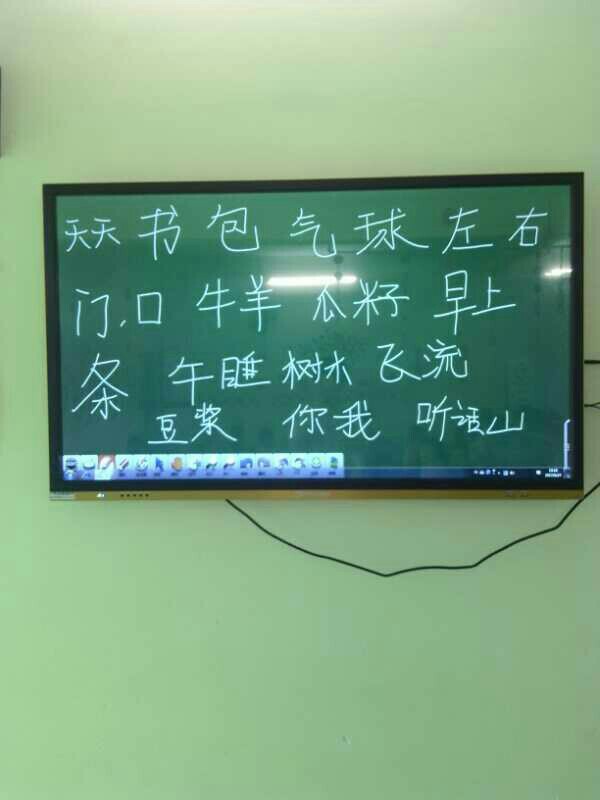 天天 书 包 气 球 左 右
门口 牛羊 瓜籽 早上
条 午睡 树木 飞流
豆浆 你我 听话山